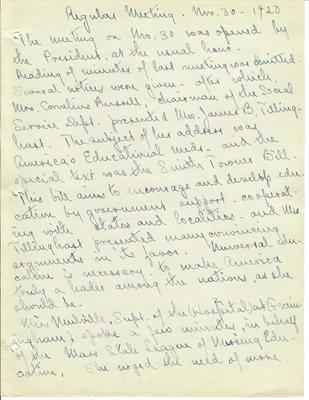 Regular Meeting. Nov. 30 - 1920
The meeting on Nov. 30 was opened by
the President, at the usual hour.
Reading of minutes of last meeting was omitted.
Several notices were given - after which,
Mrs. Cornelius Russell, Chairman of the Social
Service Dept. presented Mrs. James B. Tilling-
hast. The subject of her address was
America's Educational needs - and the
special text was the Smith Towner Bill.
This bill aims to encourage and develop edu-
cation by government support - cooperat-
ing with States and localities - and Mrs.
Tillinghast presented many convincing
arguments in its favor. Universal edu-
cation is necessary to make America
truly a leader among the nations, as she
should be.
Miss Supt. of the (Hospital) at (Fram-
ingham) spoke a few minutes, in behalf
of the Mass State League of Nursing Edu-
cation, She urged the need of more